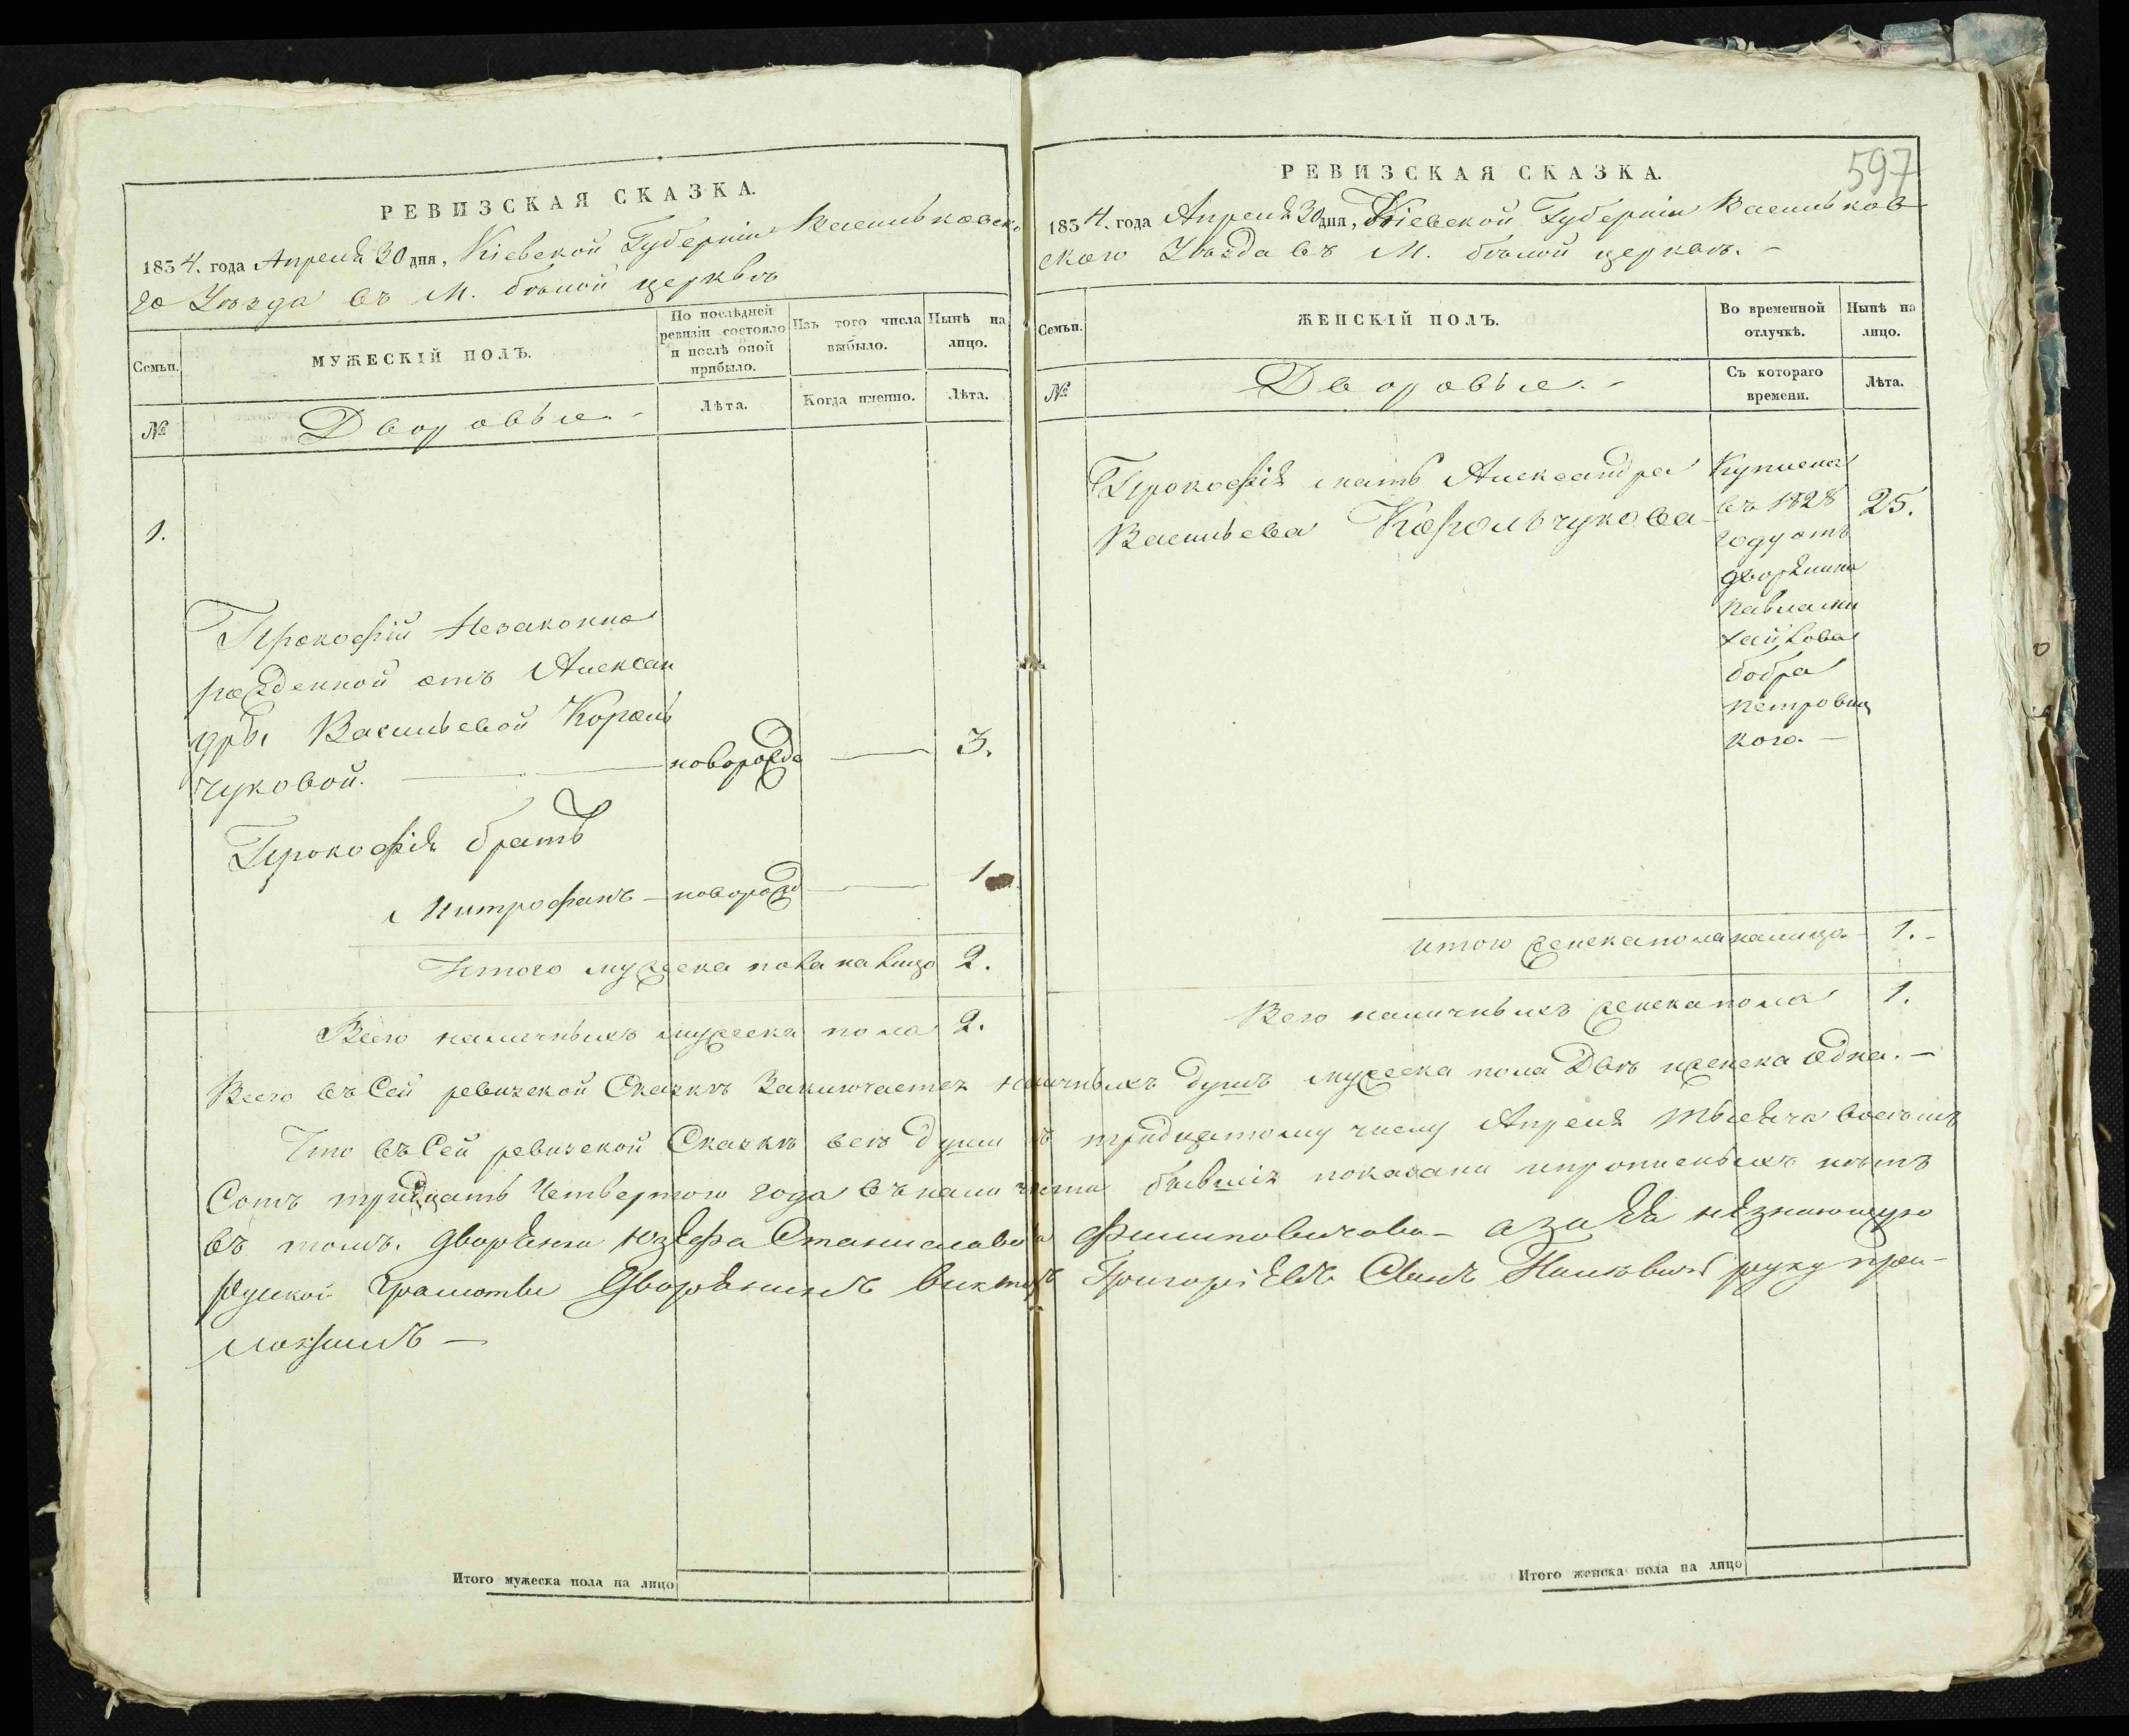 РЕВИЗСКАЯ СКАЗКА.
1834. года Апреля 30 дня, Кіевской Губерніи Васильковска
го Уѣзда въ М. бѣлой церквѣ
Семьи.
МУЖЕСКІЙ ПОЛЪ.
По послѣдней ревизіи состояло и послѣ оной прибыло.
Изъ того числа выбыло.
Нынѣ на лицо.
№
Дворовые.-
Лѣта.
Когда именно.
Лѣта.
1.
Прокофій Незаконно
рожденной отъ Алексан
дры Васильевой Король
чуковой. — новорожде — 3.
Прокофія братъ
Митрофанъ — новорожд — 1
Итого мужеска пола на лицо 2.
Всего наличныхъ мужеска пола 2.
РЕВИЗСКАЯ СКАЗКА.
597
1834. года Апреля 30 дня, Кіевской Губерніи Васильков
ского Уѣзда въ М. бѣлой церквѣ.-
Семьи.
ЖЕНСКІЙ ПОЛЪ.
Во временной отлучкѣ.
Нынѣ на лицо.
№
Дворовые.-
Съ котораго времени.
Лѣта.
Прокофія мать Александра
Васильева Корольчукова
Куплена
въ 1828
году отъ
дворянина
Павла Ми
хайлова
бобра
Петровиц
кого.—
25.
итого женска пола налицо - 1.-
Всего наличныхъ женска пола 1.
Всего въ Сей ревизской Сказкѣ Заключается наличныхъ душъ мужеска пола Двѣ и женска Одна.—
Что въ Сей ревизской Сказкѣ всѣ души къ тридцатому числу Апреля тысяча восемь
Сотъ тридцать Четвертого года въ наличности бывшія показани и прописныхъ нѣтъ
въ томъ. дворянки Юзефа Станиславова Филиповичова - а за Ея незнающую
руской Грамоты Дворянинъ Викторъ Григоріевъ Сынъ руку при-
ложилъ —
Итого мужеска пола на лицо
Итого женска пола на лицо